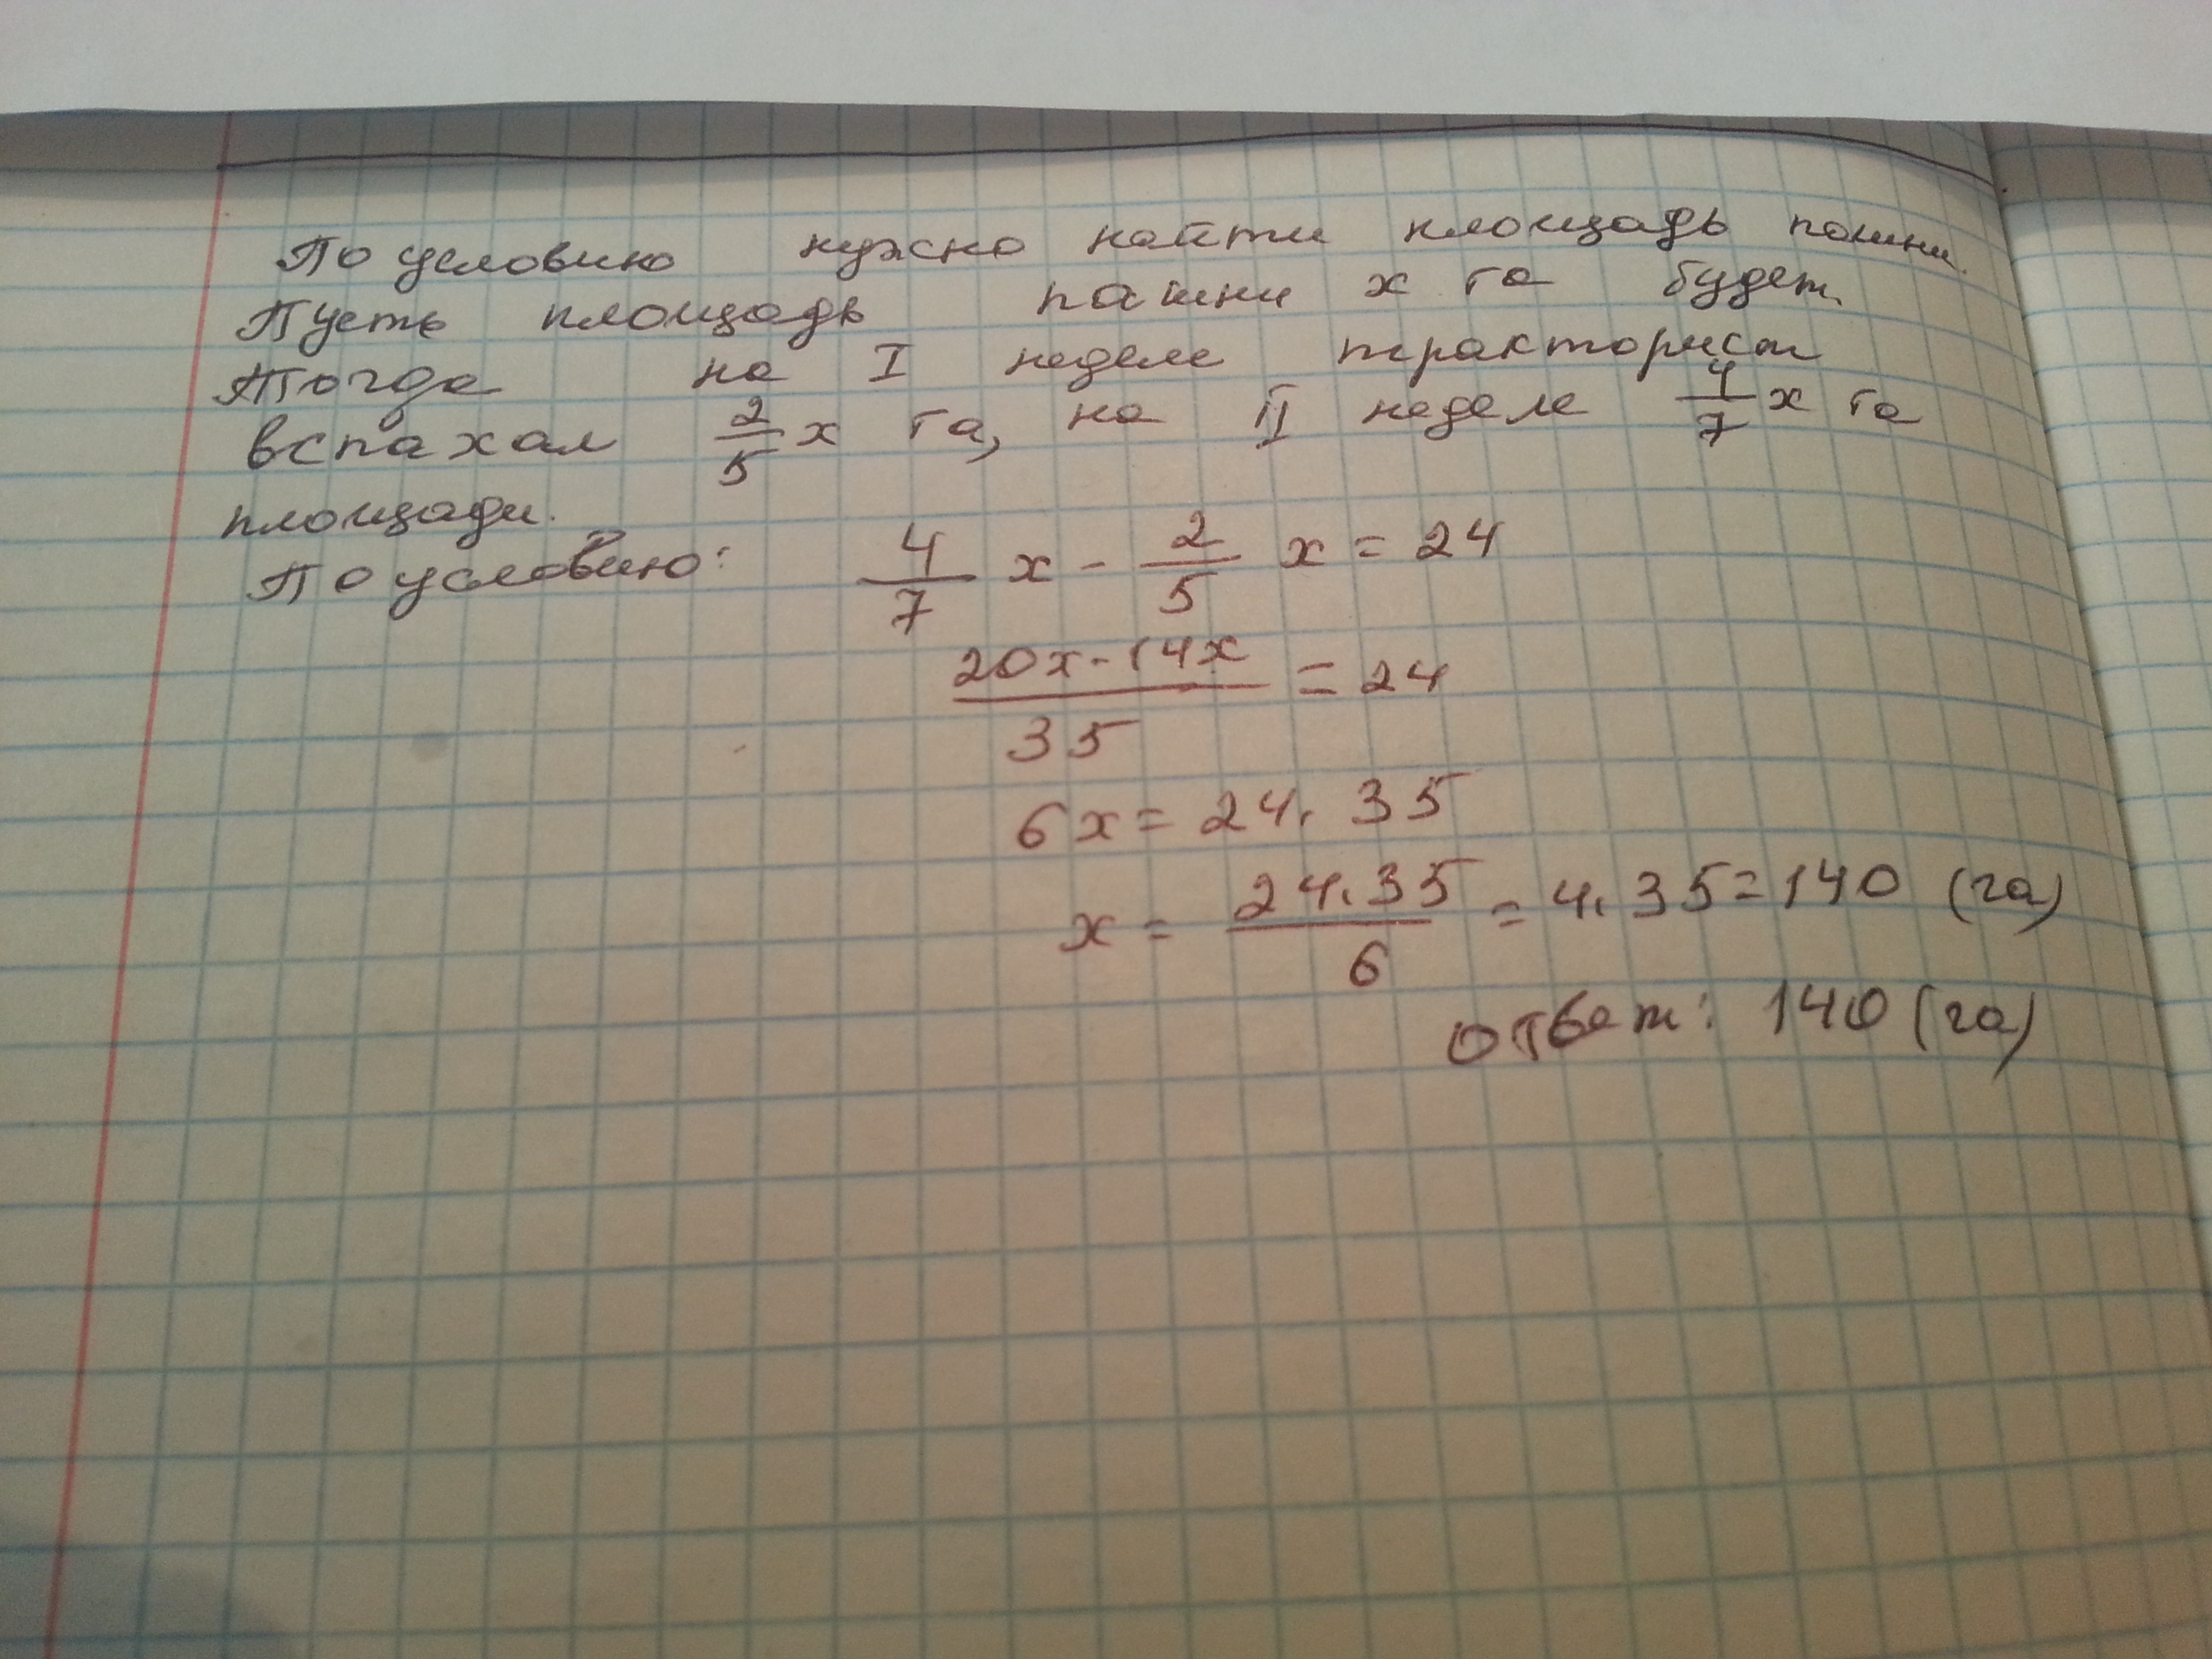 По условию нужно найти площадь пашни.
Пусть площадь пашни x га будет.
Тогда на I неделе тракторист
вспахал 2/5 x га, на II неделе 4/7 x га
площади.
По условию: 4/7 x - 2/5 x = 24
20x - 14x / 35 = 24
6x = 24 · 35
x = 24 · 35 / 6 = 4 · 35 = 140 (га)
Ответ: 140 (га)